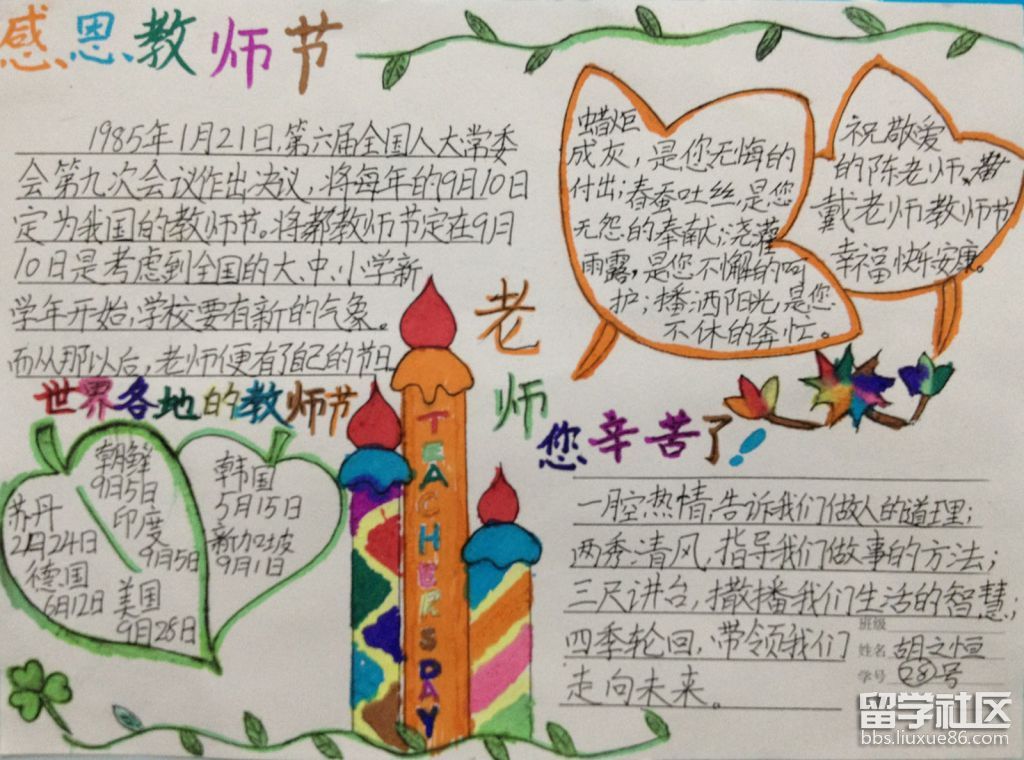 感恩教师节
1985年1月21日,第六届全国人大常委
会第九次会议作出决议,将每年的9月10日
定为我国的教师节。将都教师节定在9月
10日是考虑到全国的大、中、小学新
学年开始,学校要有新的气象。
而从那以后,老师便有了自己的节日
蜡炬
成灰,是您无悔的
付出;春蚕吐丝,是您
无怨的奉献;浇灌
雨露,是您不懈的呵
护;播洒阳光,是您
不休的奔忙。
祝敬爱
的陈老师、
戴老师教师节
幸福快乐安康。
老
师
您辛苦了!
世界各地的教师节
朝鲜
9月5日
印度
9月5日
苏丹
2月24日
德国
6月12日
美国
9月28日
韩国
5月15日
新加坡
9月1日
TEACHERSDAY
一腔热情,告诉我们做人的道理;
两季清风,指导我们做事的方法;
三尺讲台,撒播我们生活的智慧;
四季轮回,带领我们
走向未来。
班级
姓名 胡之恒
学号 号
留学社区
bbs.liuxue86.com